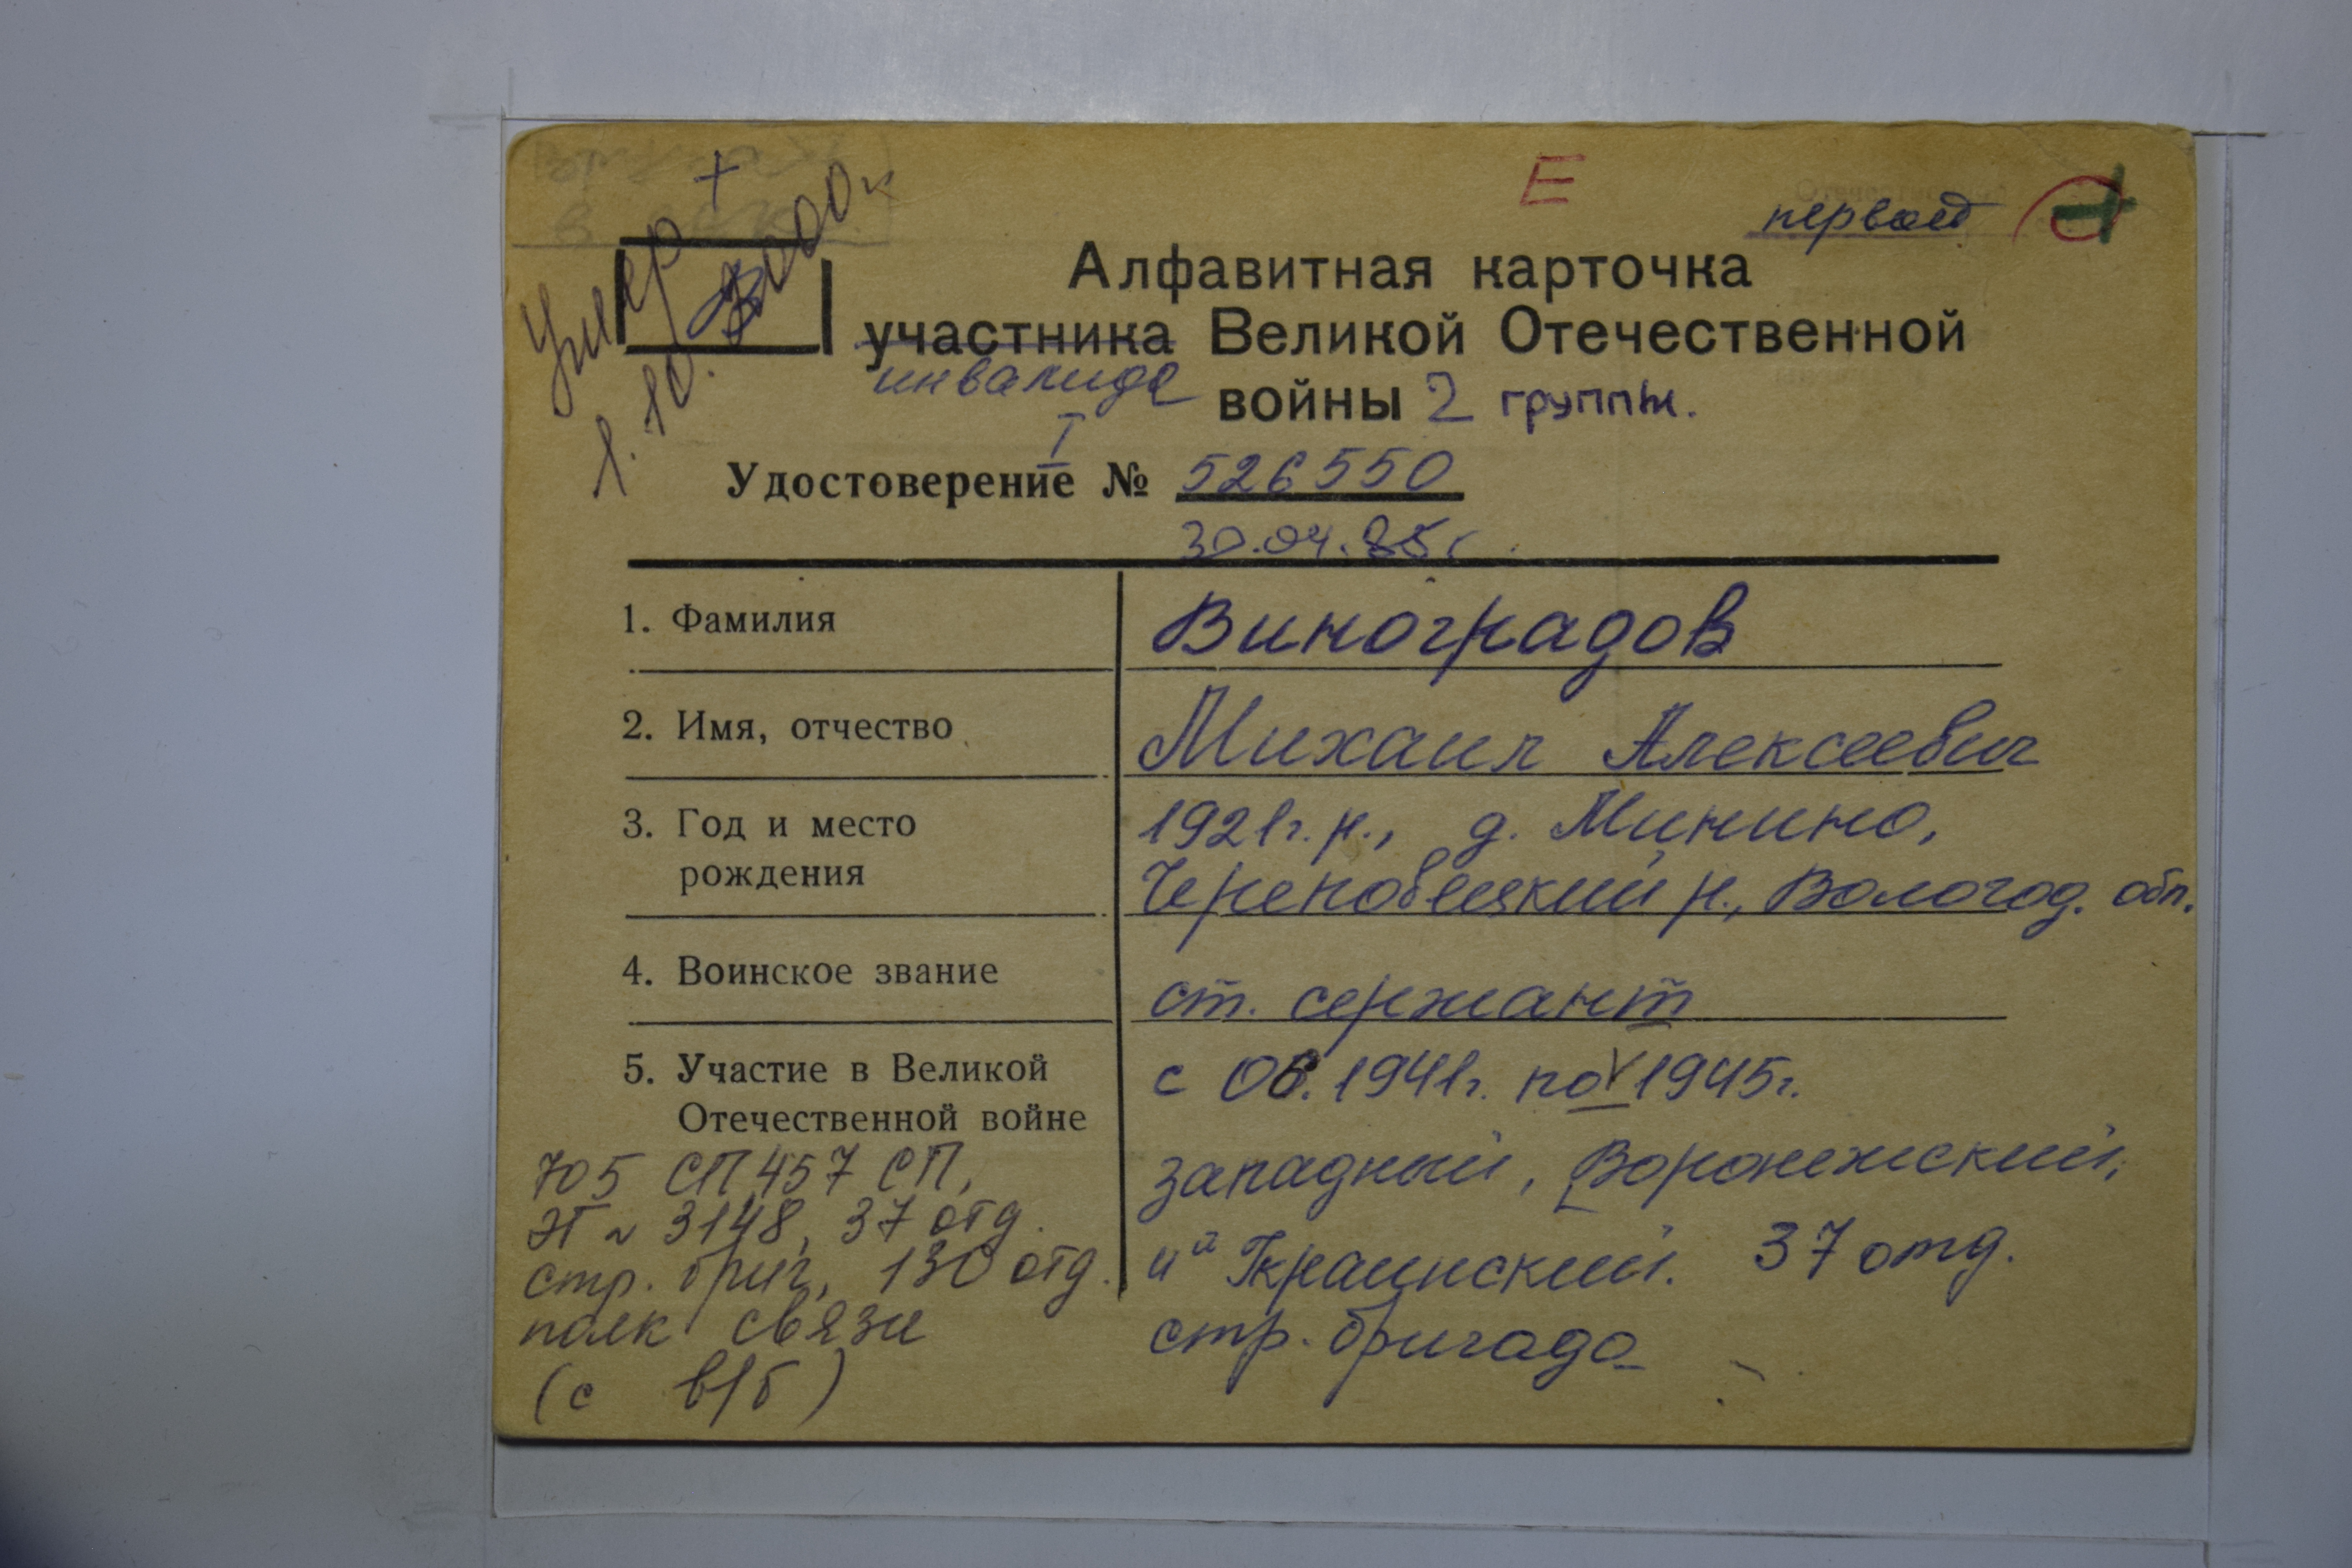 Умер +
1.10.2000г
Е
первой
Алфавитная карточка
участника Великой Отечественной
инвалида войны 2 группы.
I
Удостоверение № 526550
30.04.85г.
1. Фамилия Виноградов
2. Имя, отчество Михаил Алексеевич
3. Год и место рождения 1921г.р., д. Минино,
Череповецкий р., Вологод. обл.
4. Воинское звание ст. сержант
5. Участие в Великой с 06.1941г. по V 1945г.
Отечественной войне
западный, Воронежский,
4й Украинский. 37 отд.
стр. бригада
705 СП 457 СП,
ЭГ ~ 3148, 37 отд.
стр. бриг, 130 отд.
полк связи
(с в/б)